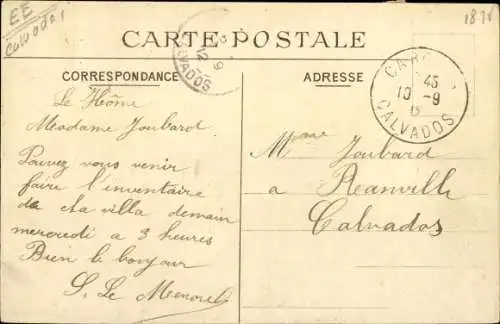 EE
Calvados
1878
CARTE POSTALE
CORRESPONDANCE
ADRESSE
9
12
CALVADOS
CA
45
10 -9
CALVADOS
Le Hôme
Madame Joubard.
Pouvez vous venir
faire l'inventaire
de cha villa demain
mercredi a 3 heures
Bien le bonjour
S. Le Menorel
Mme Joubard
a Ranville
Calvados